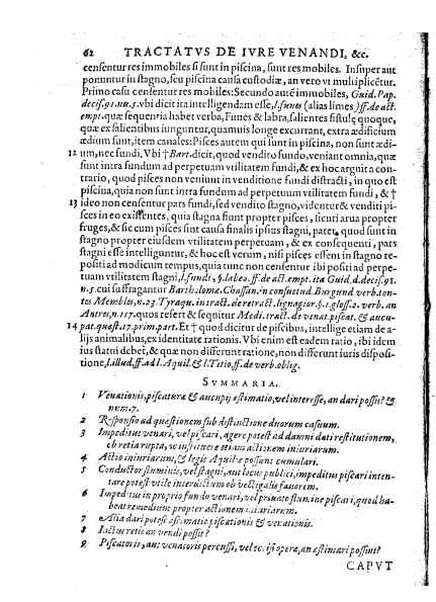 62 TRACTATVS DE IVRE VENANDI, &c.
censentur res immobiles si sunt in piscina, sunt res mobiles. Insuper aut
ponuntur in stagno, seu piscina causa custodiæ, an vero vt multiplicētur.
Primo casu censentur res mobiles: Secundo autē immobiles, Guid. Pap.
decis. 91. nu. 5. vbi dicit ita intelligendam esse, l. funes (alias limes) ff. de act.
empt. quæ sequeria habet verba, Funes & labra, salientes fistulę quoque,
quæ ex salientibus iunguntur, quamuis longe excurrant, extra ædificium
ædium sunt, item canales: Pisces autem qui sunt in piscina, non sunt ædi-
um, nec fundi. Vbi † Bart. dicit, quod vendito fundo, veniant omnia, quæ
12 sunt intra fundum ad perpetuam vtilitatem fundi, & ex hoc arguit a con-
trario, quod pisces non veniunt in venditione fundi distracti, in quo est
piscina, quia non sunt intra fundum ad perpetuam vtilitatem fundi, & †
13 ideo non censentur pars fundi, sed vendito stagno, videntur & venditi pi-
sces in eo existentes, quia stagna fiunt propter pisces, sicuti arua propter
fruges, & sic cum pisces sint causa finalis ipsius stagni, patet, quod sunt in
stagno propter eiusdem vtilitatem perpetuam, & ex consequenti, pars
stagni esse intelliguntur, & hoc est verum, nisi pisces essent in stagno re-
positi ad modicum tempus, quia tunc non censentur ibi positi ad perpe-
tuam vtilitatem stagni, l. fundi, §. labeo. ff. de act. empt. ita Guid. d. decis. 91.
n. 5. cui suffragantur Bartholome. Chassan. in consuetud. Burgund. verb.
Memblo, n. 23. Tyraqu. in tract. de retract. lignagior. §. 1. gloss. 2. verb. an
Antro, n. 117. quos refert & sequitur Medi. tract. de venat. piscat. & aucu-
14 pat. quest. 17. prim. part. Et † quod dicitur de piscibus, intellige etiam de a-
lijs animalibus, ex identitate rationis. Vbi enim est eadem ratio, ibi idem
ius statui debet, & quæ non differunt ratione, non differunt iuris disposi-
tione, l. illud, ff. ad l. Aquil. & l. Titio, ff. de verb. oblig.
SVMMARIA.
1 Venationis, piscaturæ & aucupij estimatio, vel interesse, an dari possit? &
num. 7.
2 Responsio ad questionem sub distinctione duorum casuum.
3 Impeditus venari, vel piscari, agere potest ad damni dati restitutionem,
ob retia rupta, etiam actionem iniuriarum.
4 Actio iniuriarum, & legis Aquiliæ possunt cumulari.
5 Conductor fluminis, vel stagni, aut locus publici, impeditus piscari inten-
tare potest vtile interdictum ob vectigalis fauorem.
6 Impeditus in proprio fundo venari, vel priuato flumine piscari, quod ha-
beat remedium propter actionem iniuriarum.
7 Alia dari potest æstimatio piscationis & venationis.
8 Iactus retis an vendi possit?
9 Piscatoris, aut venatoris percussi, opere, an æstimari possint?
CAPVT